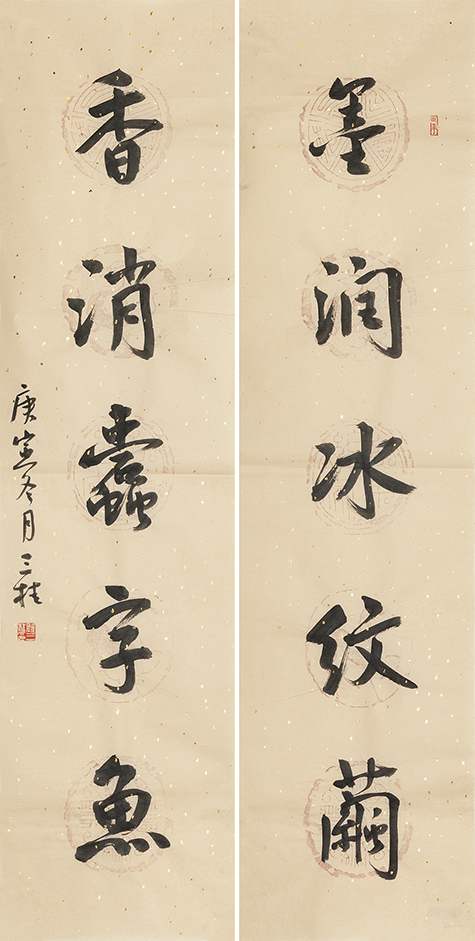 墨润冰纹茧
香消蠹字鱼
庚寅冬月三桂